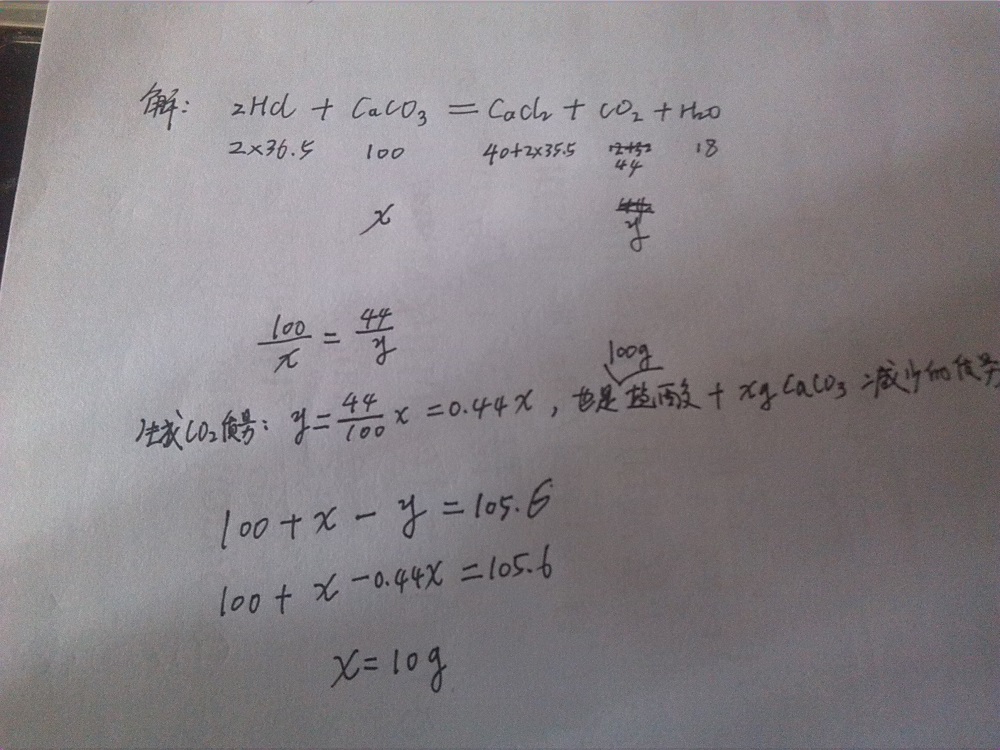 解: 2HCl + CaCO₃ = CaCl₂ + CO₂ + H₂O
2×36.5 100 40+2×35.5 44 18
x y
100/x = 44/y
100g
生成CO₂质量: y = 44/100 x = 0.44x, 也是盐酸 + xg CaCO₃ 减少的质量
100 + x - y = 105.6
100 + x - 0.44x = 105.6
x = 10g